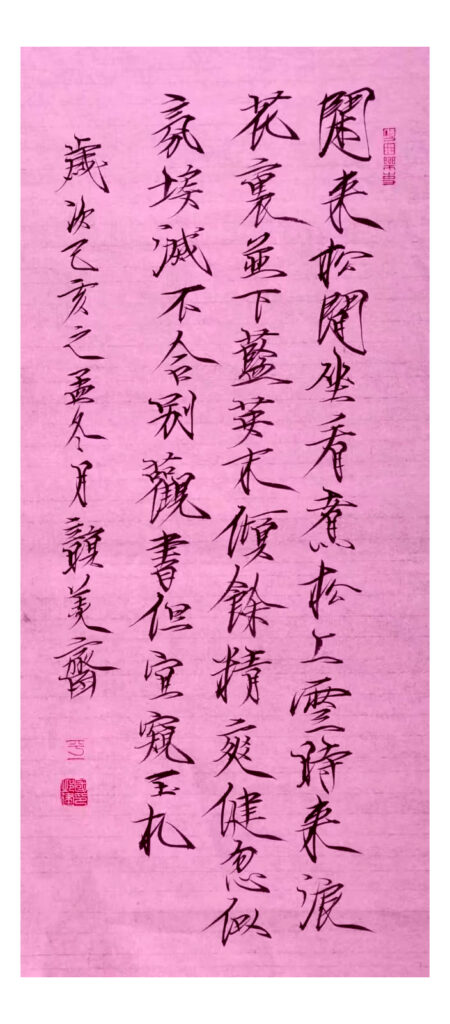 閒來松閒坐看煮松上雪時來浪
花裏並下藍英末傾餘精爽健忽似
氛埃滅不合別觀書但宜窺玉札
歲次己亥之孟冬月美齋